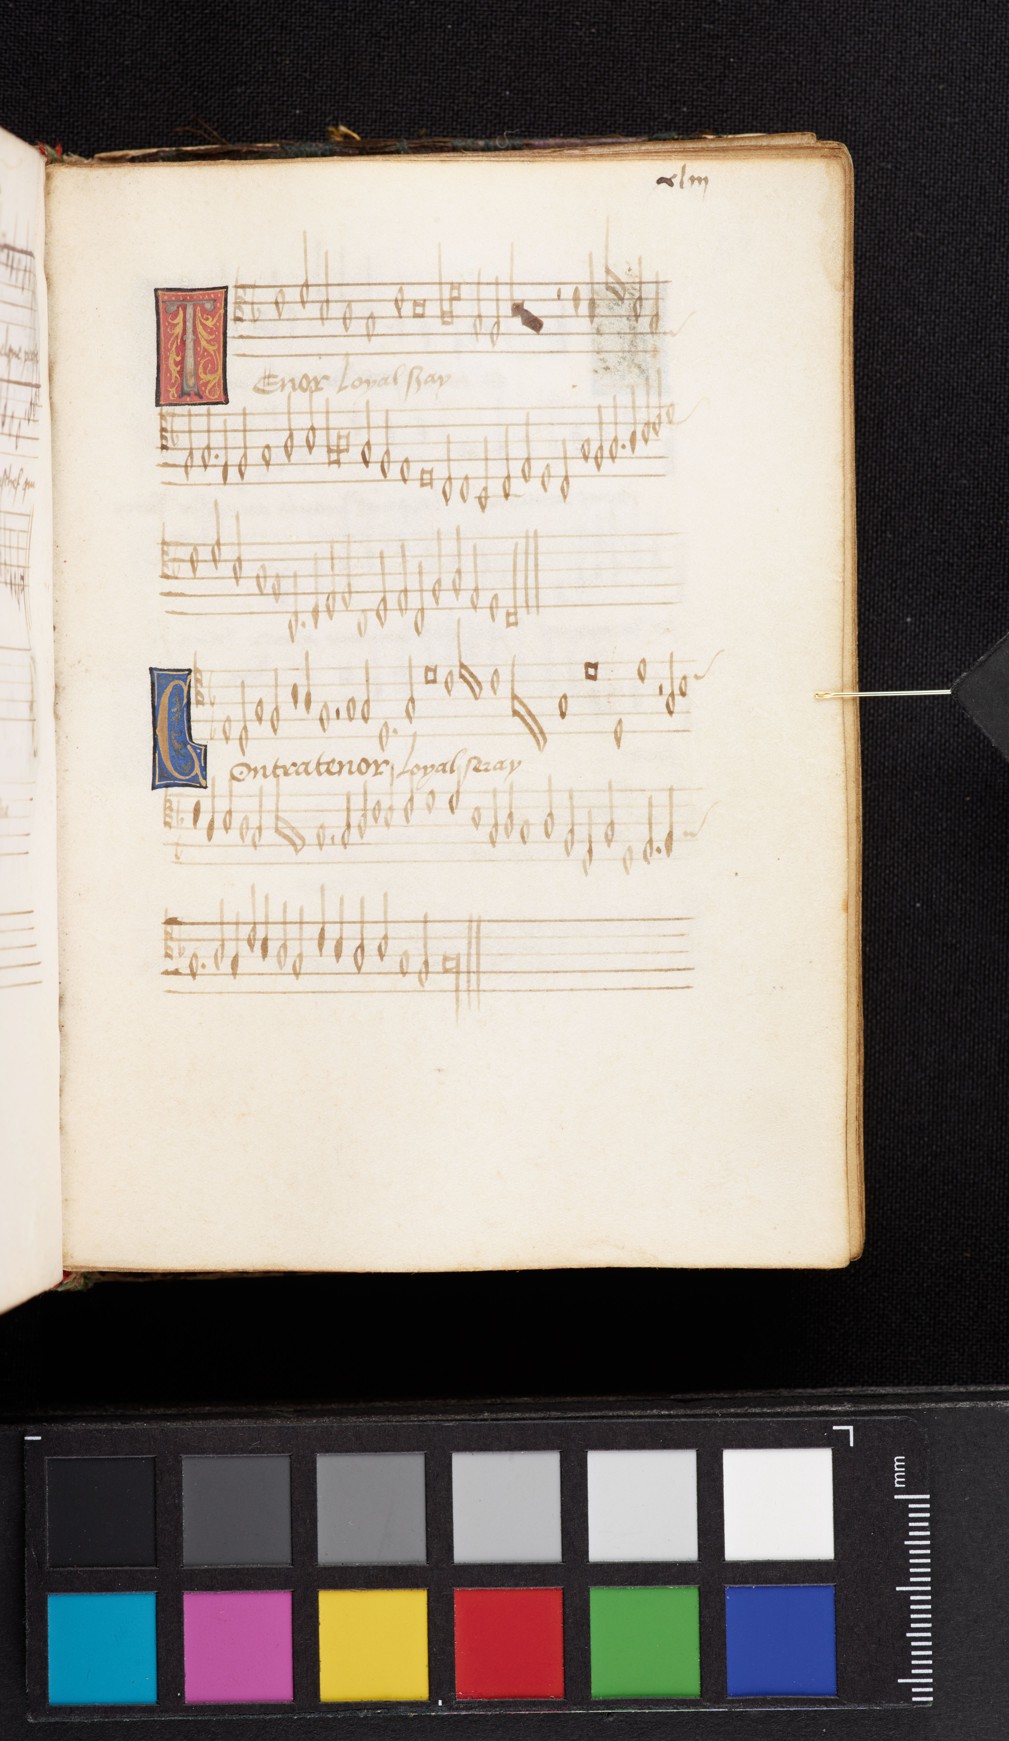 xliii
TEnor Loyal sray
Contratenor Loyal seray
mm